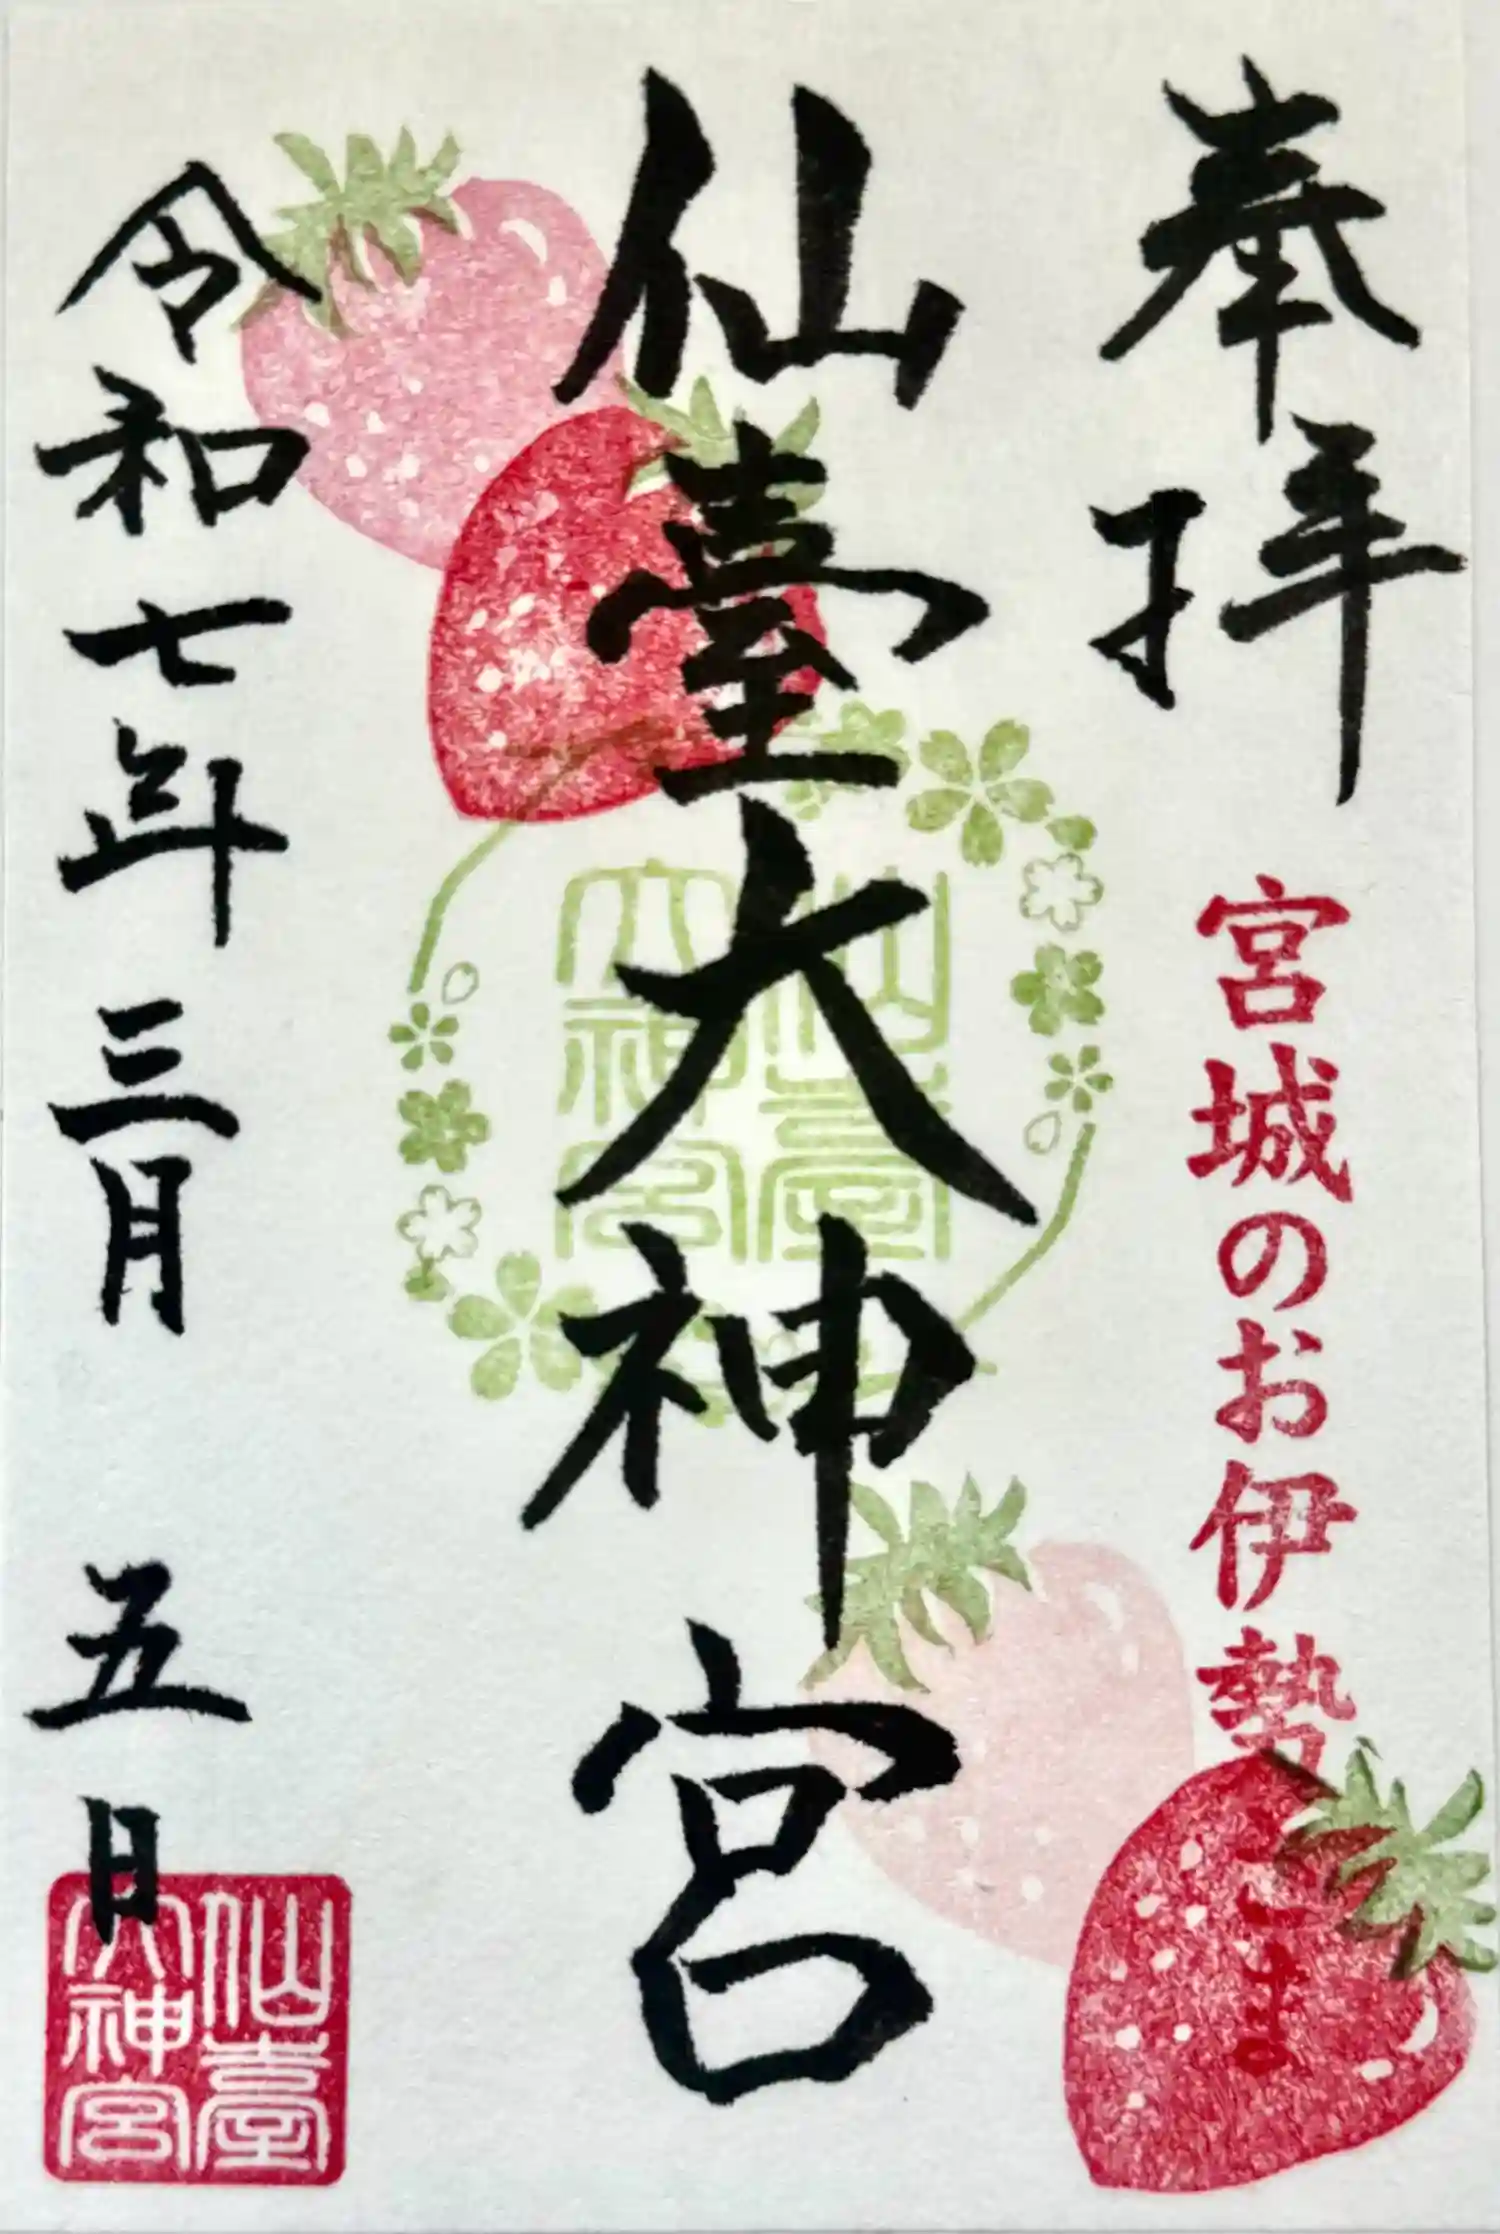 奉拝
宮城のお伊勢さま
仙臺大神宮
仙臺
大神宮
令和七年三月五日
仙臺
大神宮